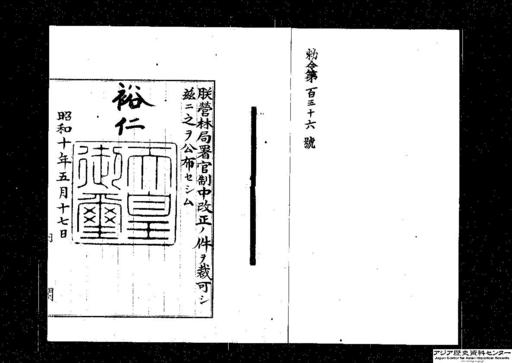 勅令第百三十六號
朕營林局署官制中改正ノ件ヲ裁可シ
茲ニ之ヲ公布セシム
裕仁
天皇
御璽
昭和十年五月十七日
内閣
アジア歴史資料センター
Japan Center for Asian Historical Records